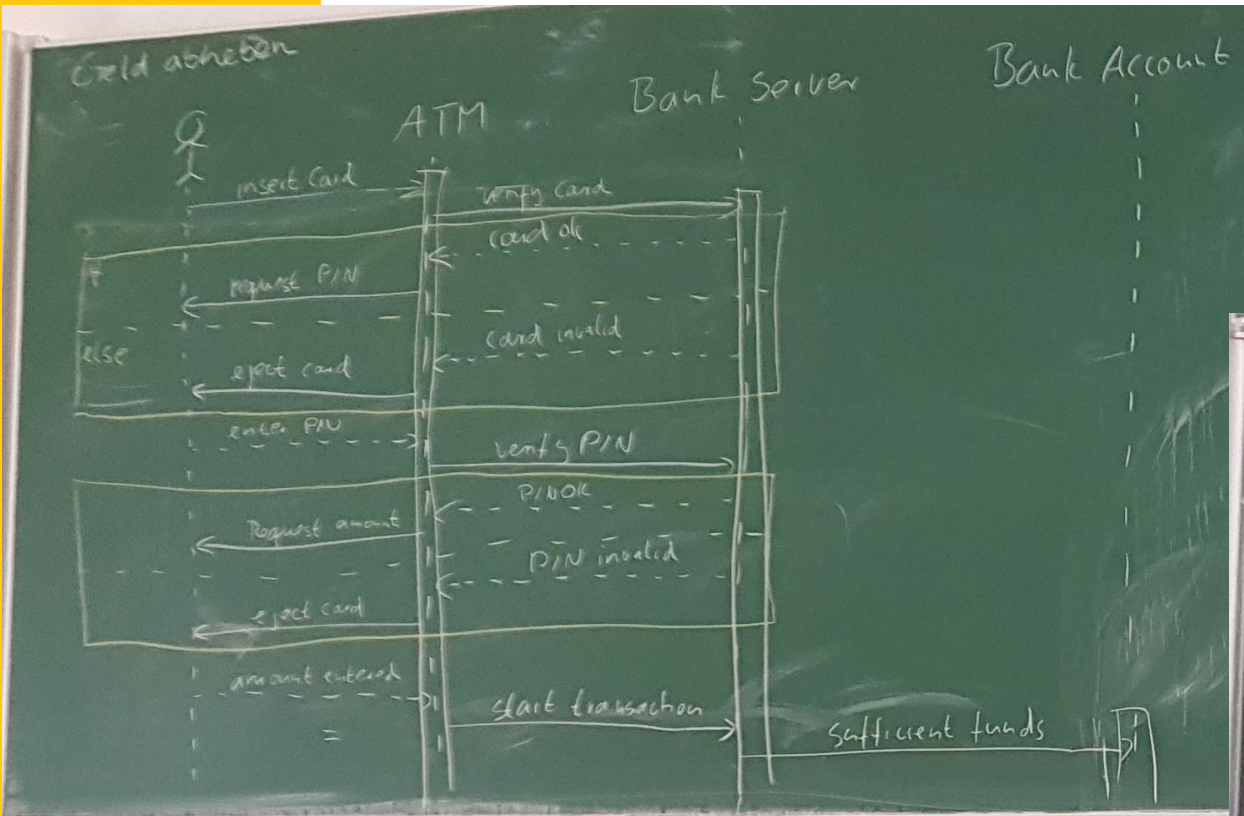 Geld abheben
ATM
Bank Server
Bank Account
insert Card
verify Card
card ok
request PIN
card invalid
else
eject card
enter PIN
verify PIN
PIN OK
Request amount
PIN invalid
eject card
amount entered
start transaction
sufficient funds